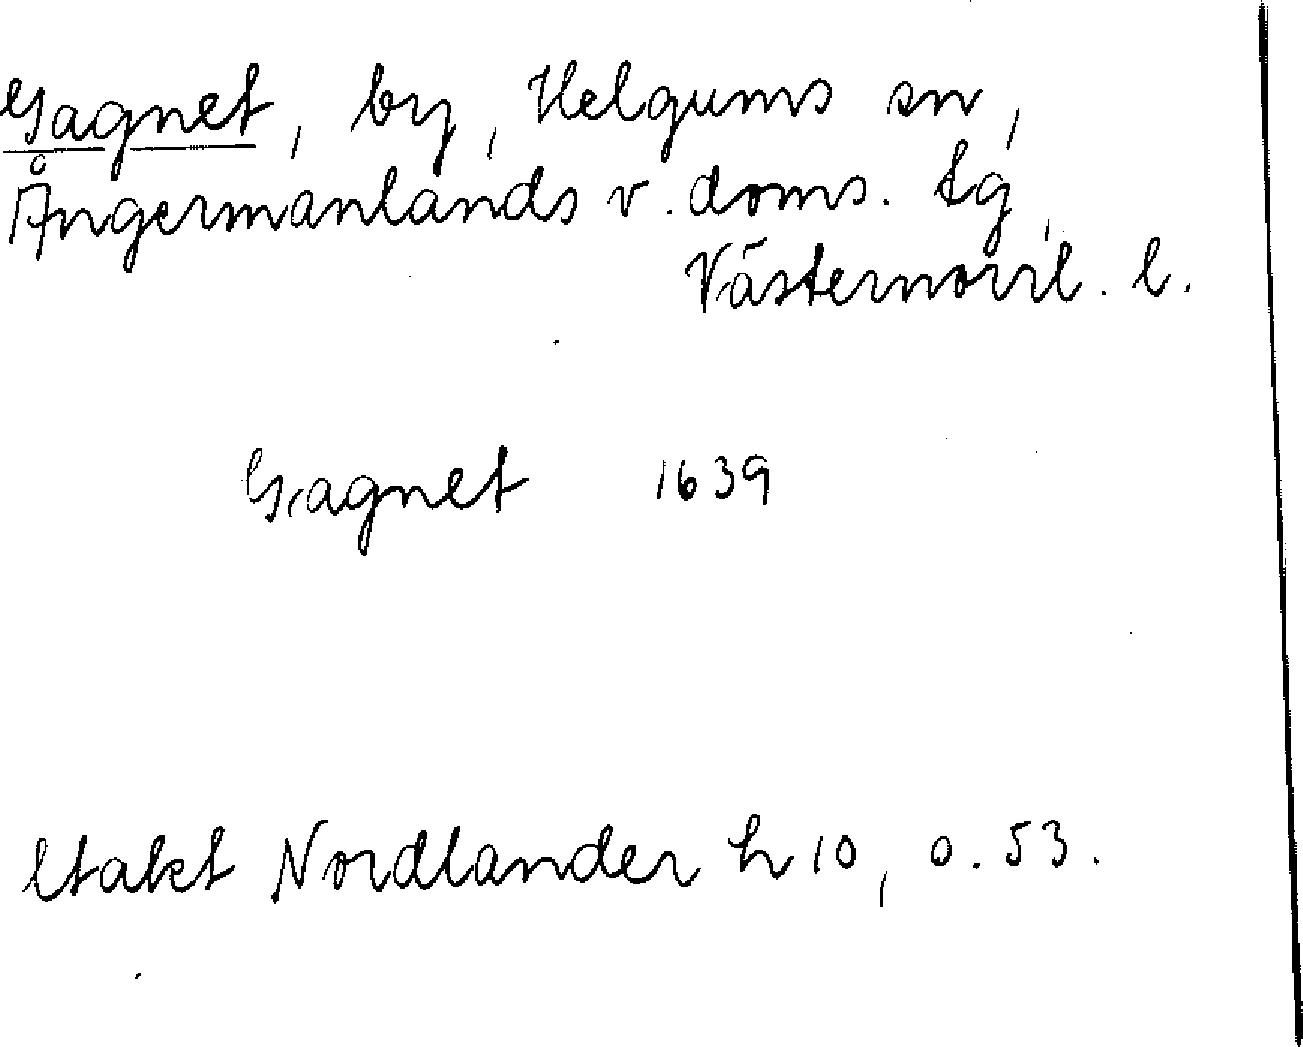 Gagnet, by, Helgums sn,
Ångermanlands v. doms. tg,
Västernorrl. l.
Gagnet 1639
Utakt Nordlander h 10, s. 53.